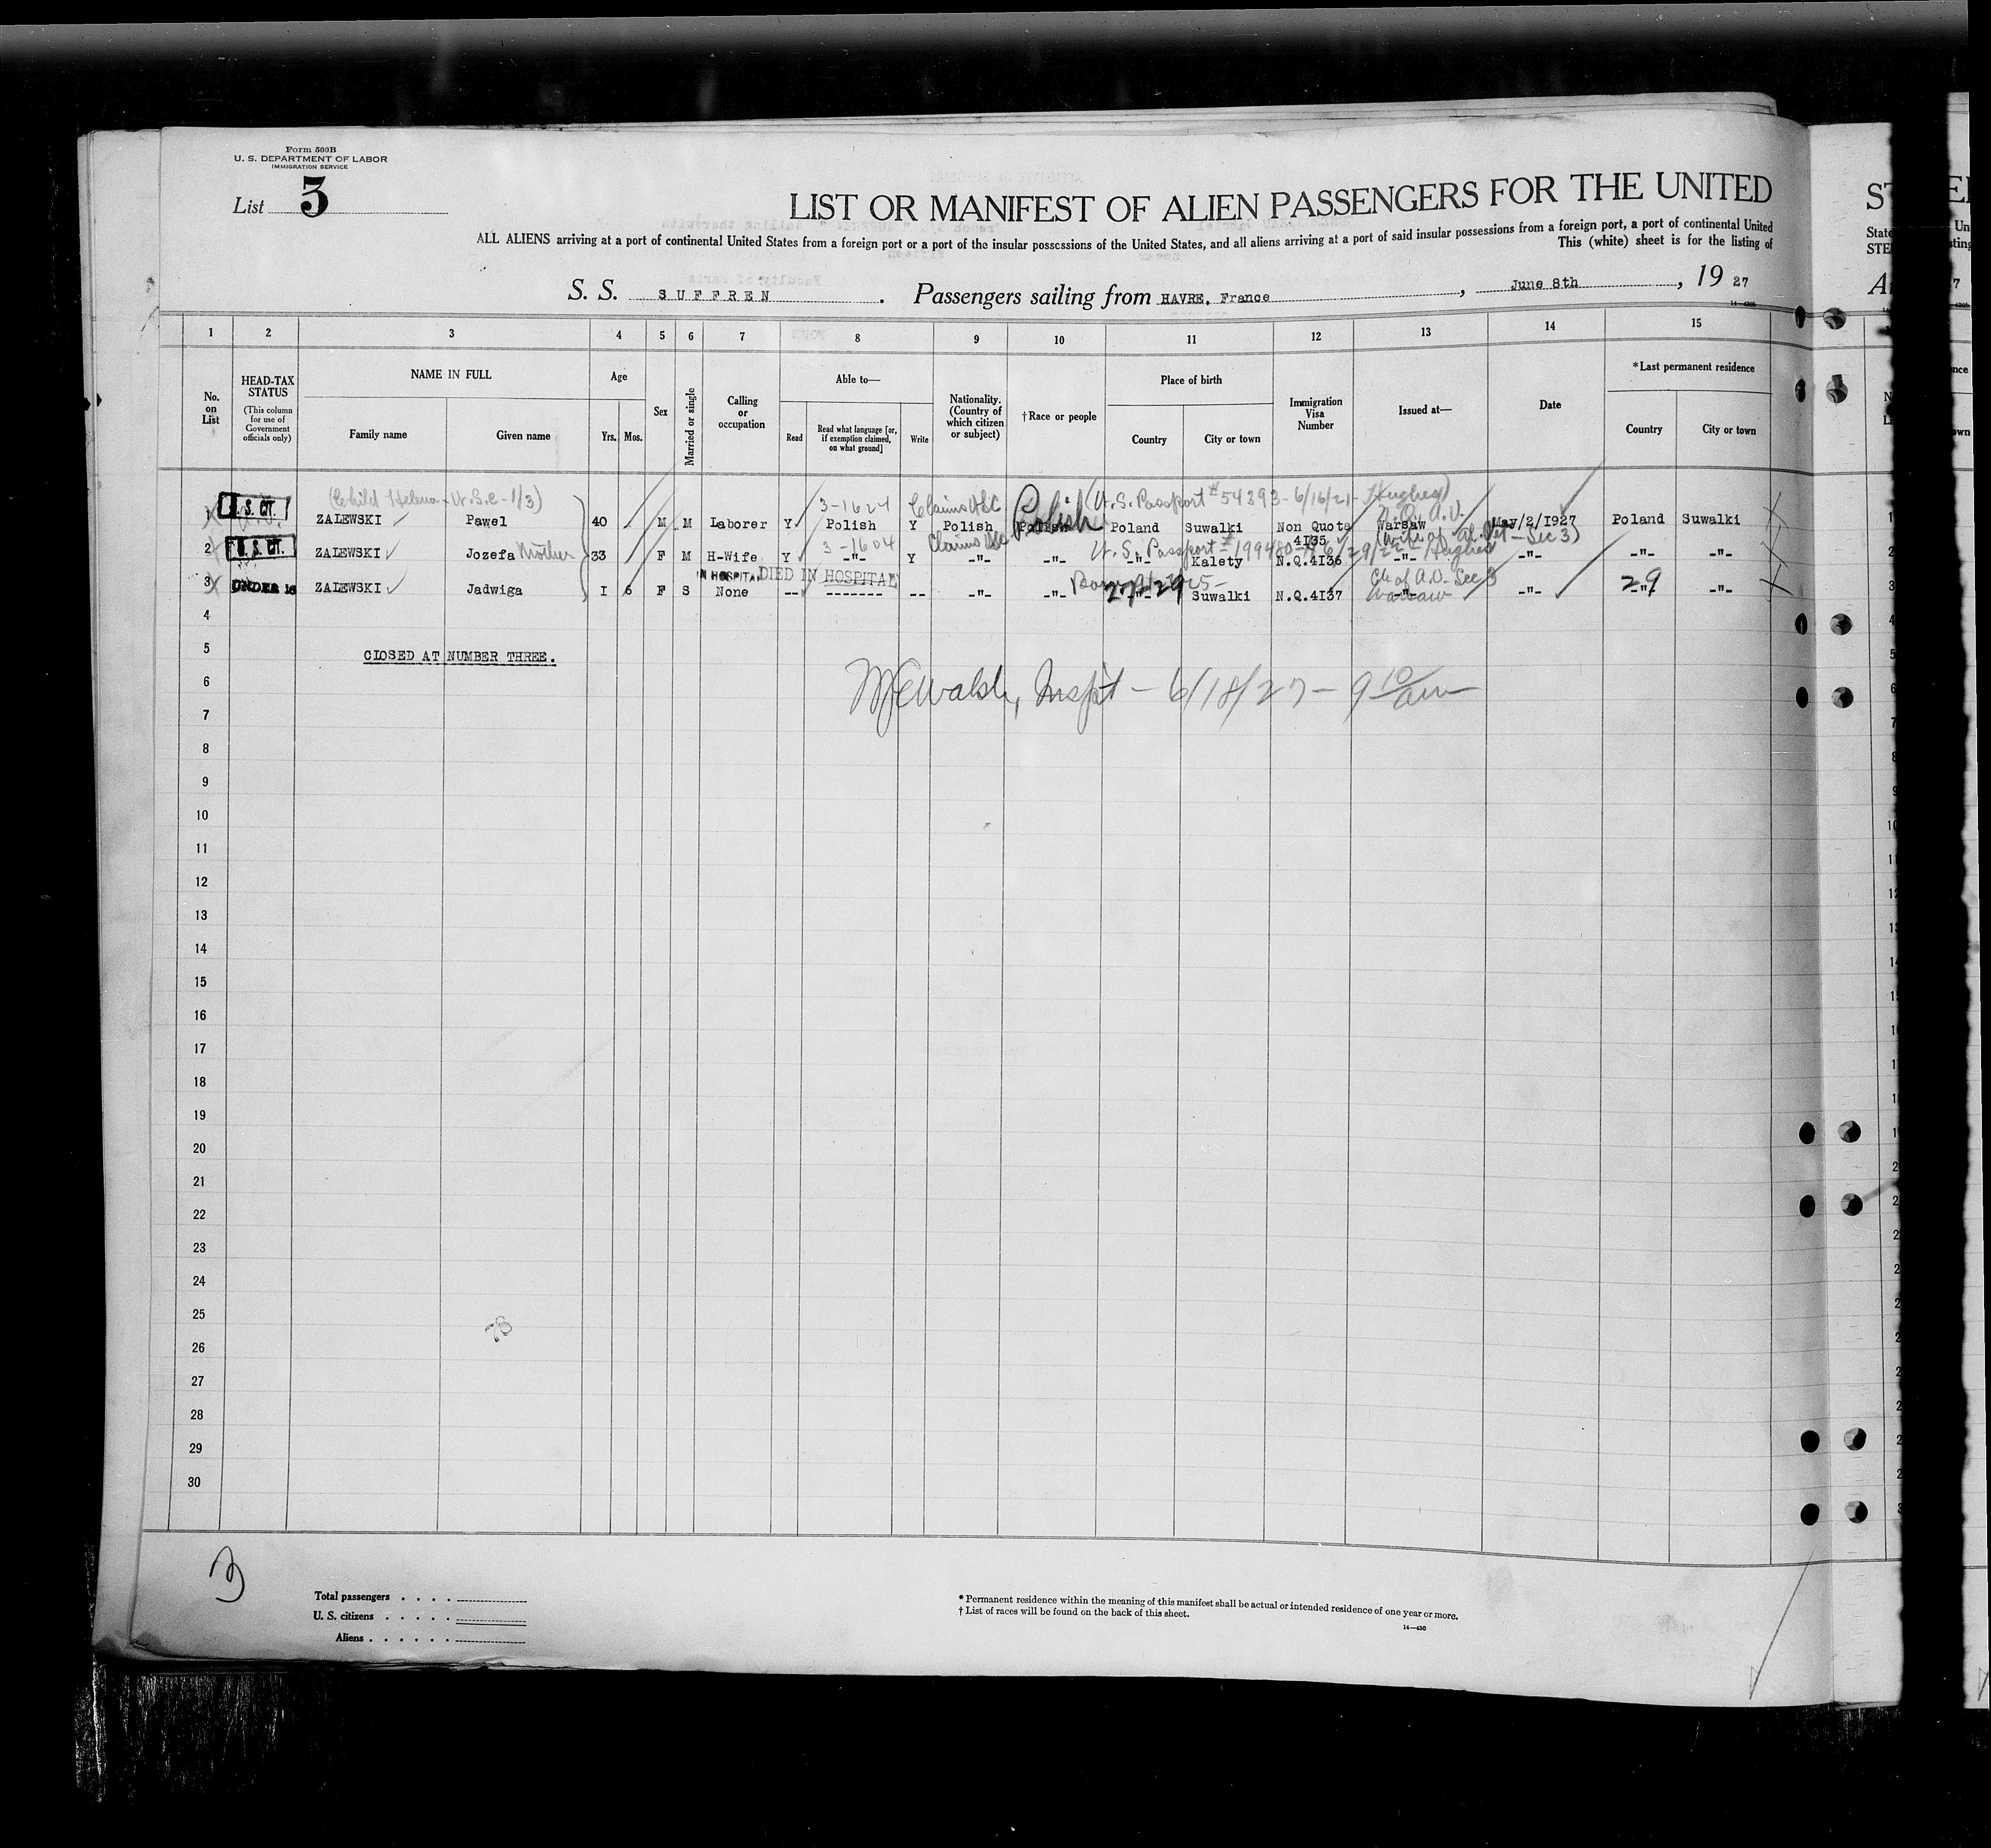 Form 500B
U. S. DEPARTMENT OF LABOR
IMMIGRATION SERVICE
List 3
LIST OR MANIFEST OF ALIEN PASSENGERS FOR THE UNITED
ALL ALIENS arriving at a port of continental United States from a foreign port or a port of the insular possessions of the United States, and all aliens arriving at a port of said insular possessions from a foreign port, a port of continental United
This (white) sheet is for the listing of
S. S. SUFFREN. Passengers sailing from HAVRE, France, June 8th, 19 27
1 2 3 4 5 6 7 8 9 10 11 12 13 14 15
No. on List
HEAD-TAX STATUS (This column for use of Government officials only)
NAME IN FULL
Family name Given name
Age
Yrs. Mos.
Sex
Married or single
Calling or occupation
Able to—
Read
Read what language [or, if exemption claimed, on what ground]
Write
Nationality. (Country of which citizen or subject)
†Race or people
Place of birth
Country City or town
Immigration Visa Number
Issued at—
Date
*Last permanent residence
Country City or town
(Child Helena - U.S.C - 1/3) 3-1624 Claims USC (U.S. Passport #54393 - 6/16/21 - Hughes)
1 U. S. CIT. ZALEWSKI Pawel 40 M M Laborer Y Polish Y Polish Polish Poland Suwalki Non Quota 4I35 Warsaw May/2/I927 Poland Suwalki
3-1604 Claims USC U.S. Passport #199480 Hughes (Wife of Sec 3)
2 U. S. CIT. ZALEWSKI Jozefa Mother 33 F M H-Wife Y -"- Y -"- -"- -"- Kalety N.Q.4I36 -"- -"- -"- -"-
IN HOSPITAL DIED IN HOSPITAL Ch of A.D. Sec 3
3 UNDER 16 ZALEWSKI Jadwiga I 6 F S None -- ------- -- -"- -"- -"- Suwalki N.Q.4I37 -"- Warsaw -"- -"- 29 -"-
4
5 CLOSED AT NUMBER THREE.
6 Walsh, Inspt - 6/18/27 - 9 10/am
7
8
9
10
11
12
13
14
15
16
17
18
19
20
21
22
23
24
25
26
27
28
29
30
3
Total passengers
U. S. citizens
Aliens
* Permanent residence within the meaning of this manifest shall be actual or intended residence of one year or more.
† List of races will be found on the back of this sheet.
14—430